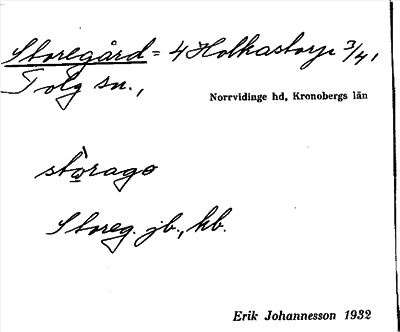 Storegård = 4 Holkastorp 3/4,
Tolg sn.,
Norrvidinge hd, Kronobergs län
stòrago
Storeg. jb., kb.
Erik Johannesson 1932